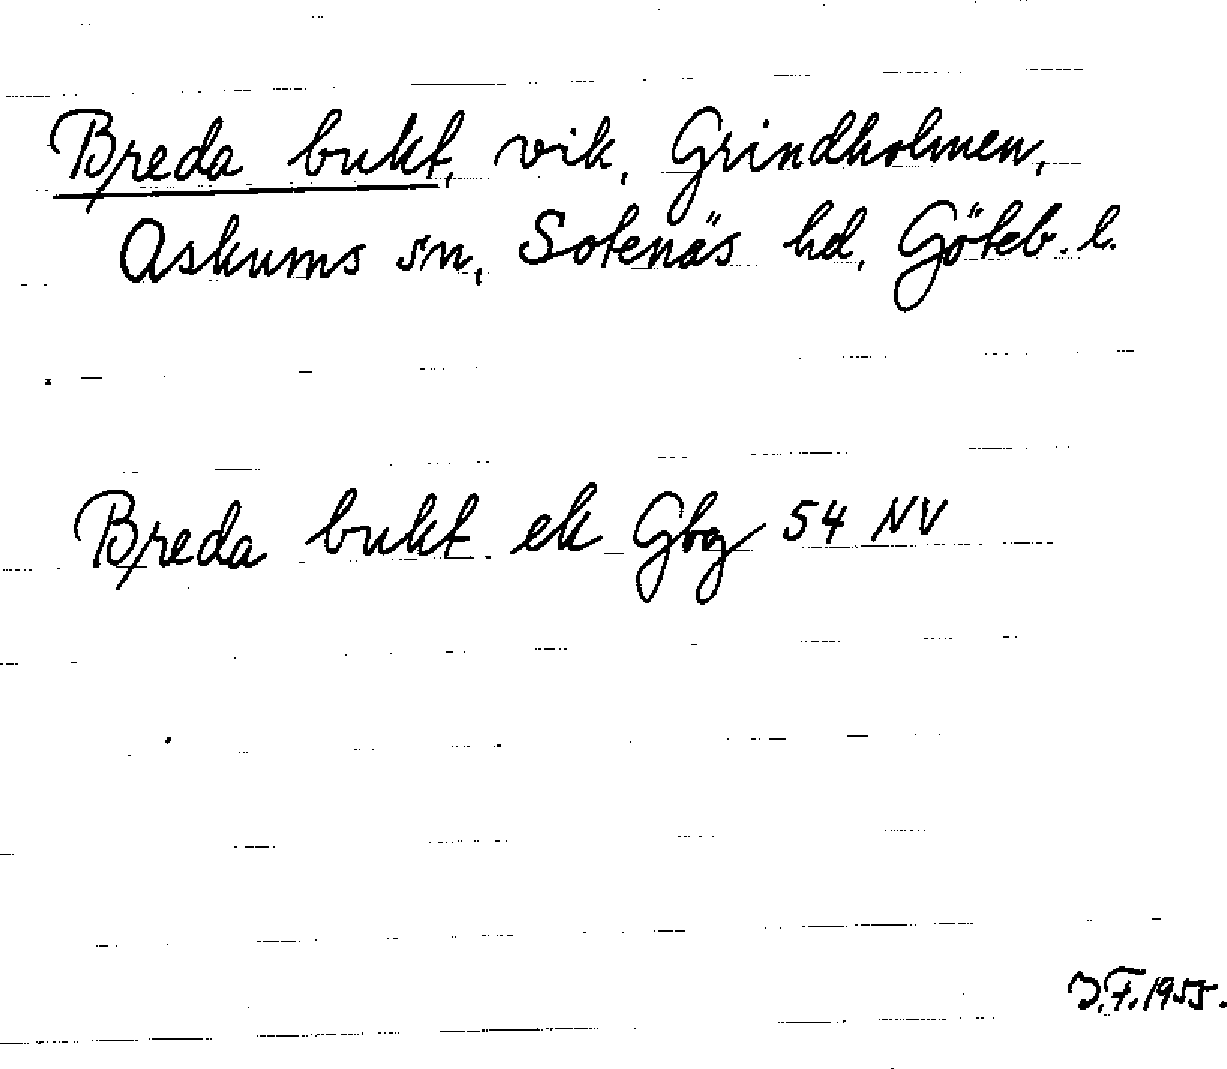 Breda bukt, vik, Grindholmen,
Askums sn, Sotenäs hd, Göteb. l.
Breda bukt ek Gbg 54 NV
J.F. 1955.